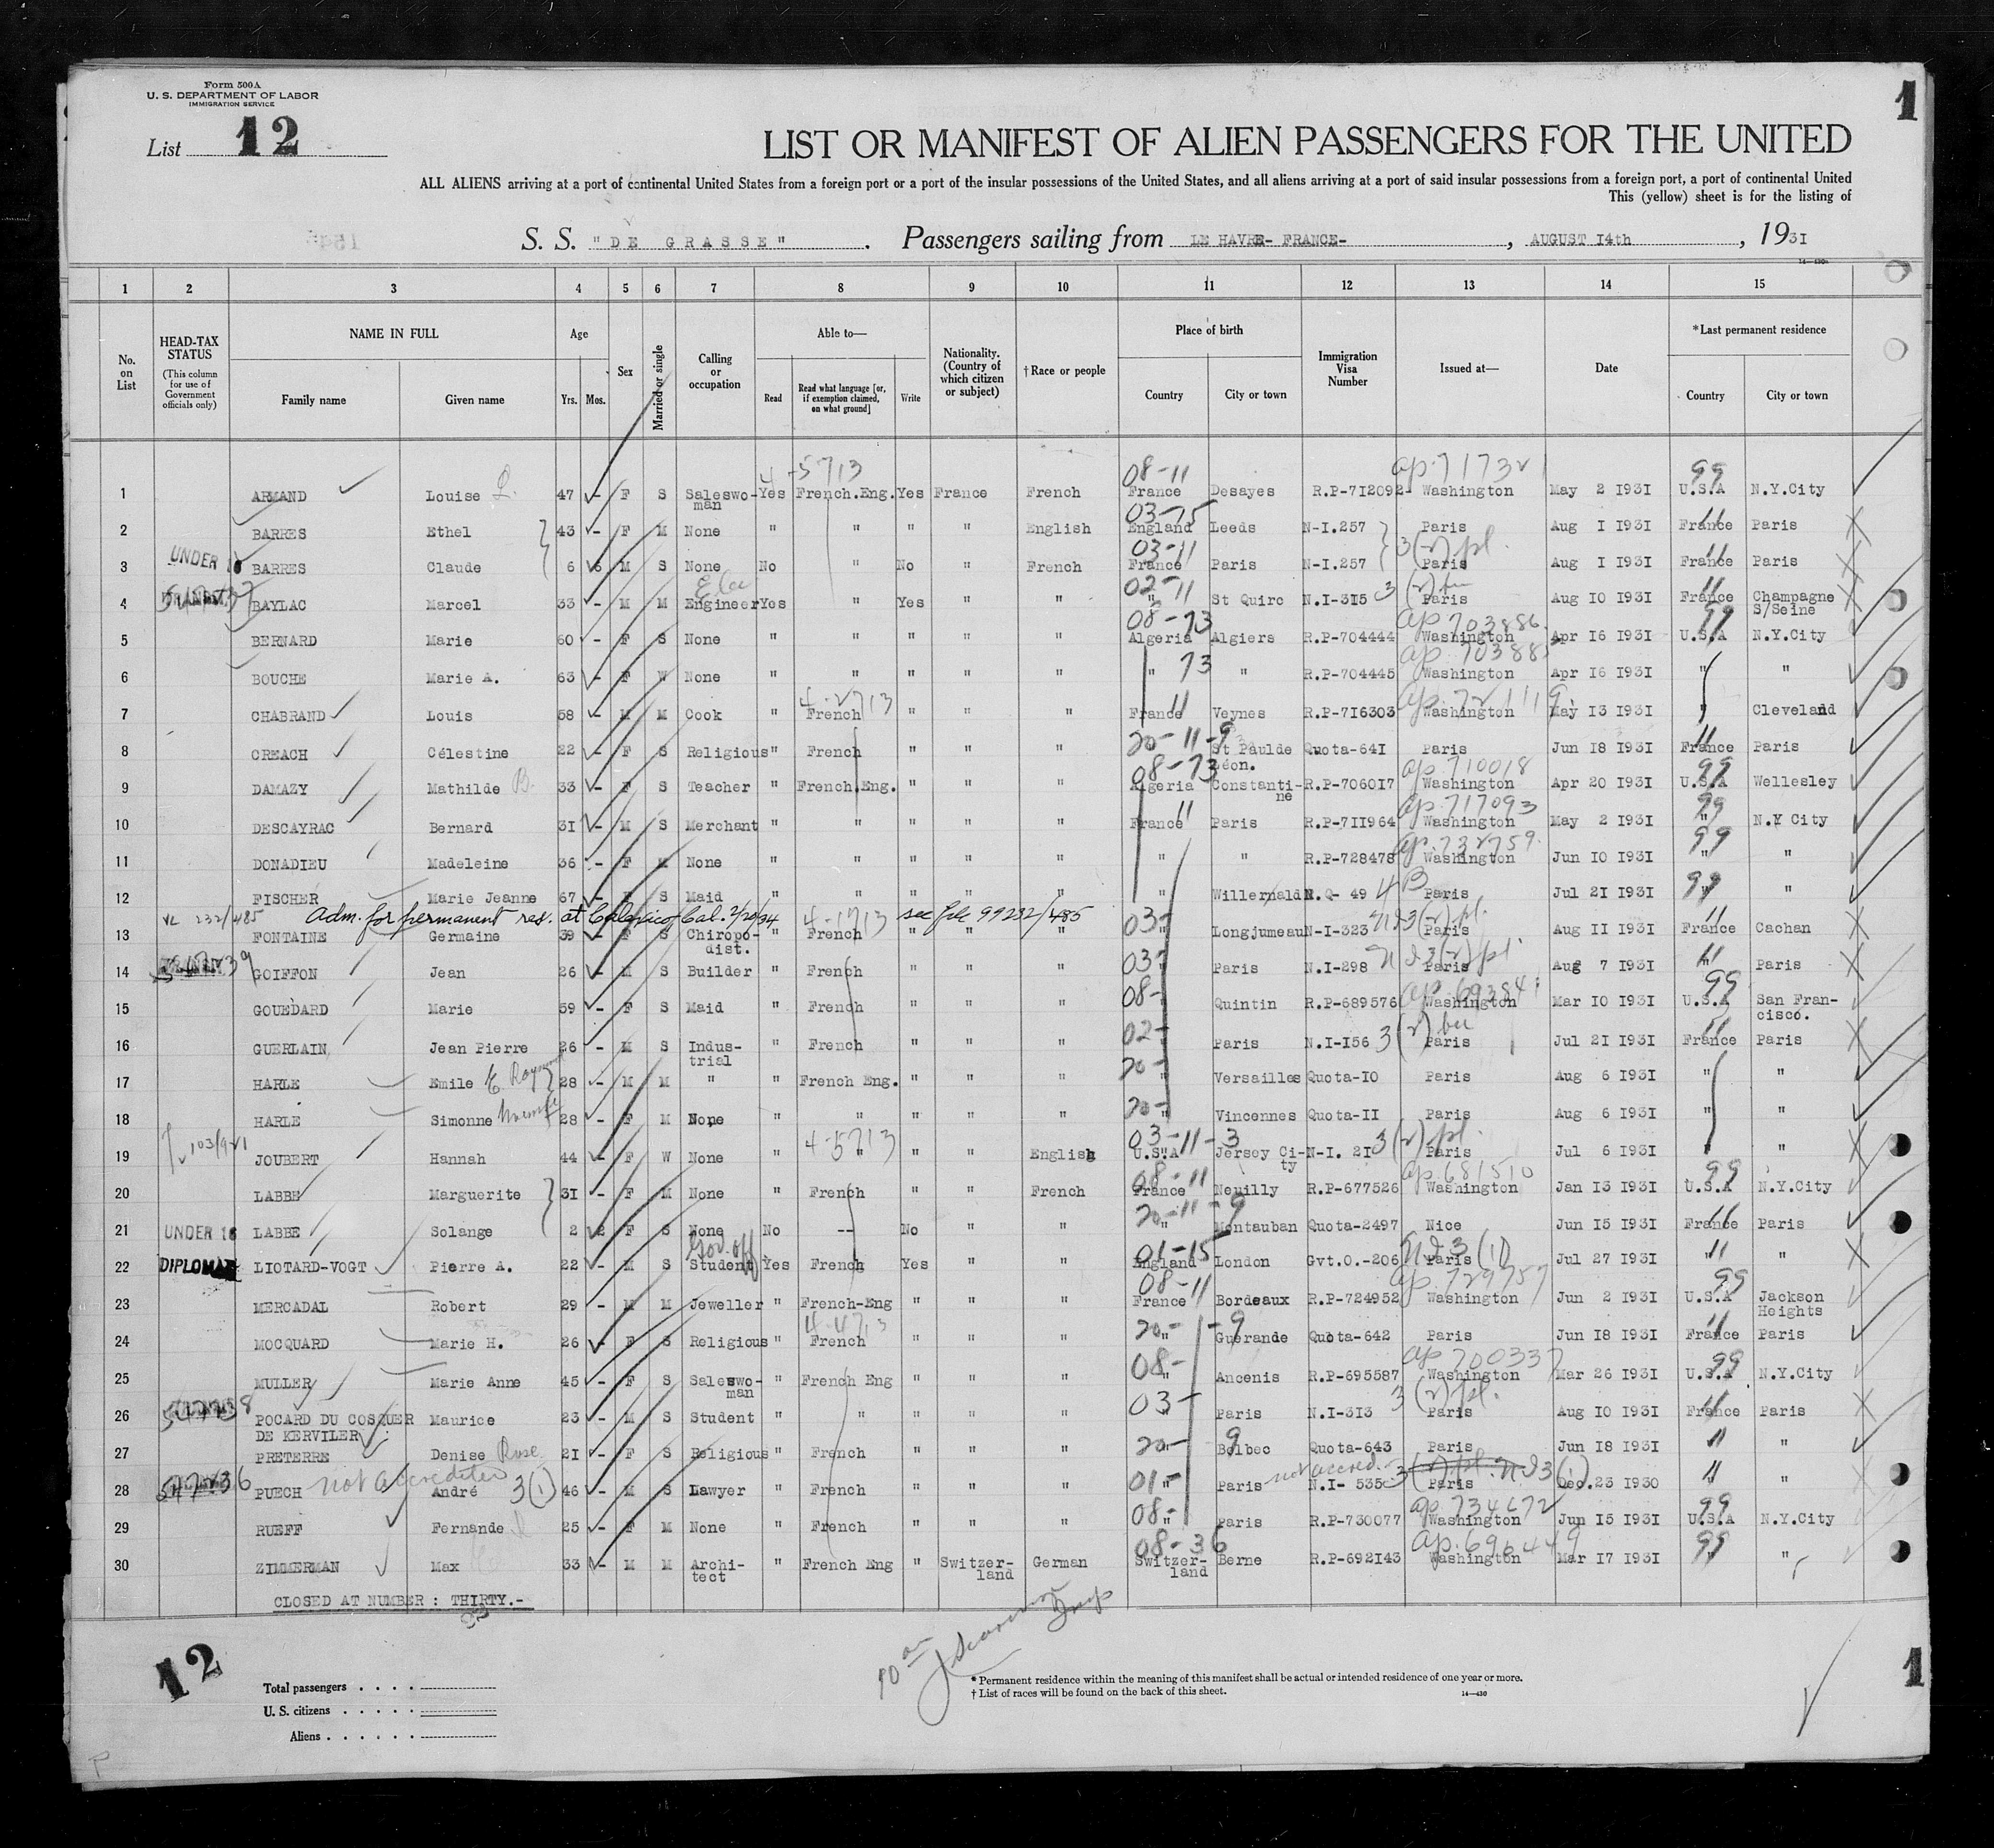 Form 500A
U. S. DEPARTMENT OF LABOR
IMMIGRATION SERVICE
1
List 12
LIST OR MANIFEST OF ALIEN PASSENGERS FOR THE UNITED
ALL ALIENS arriving at a port of continental United States from a foreign port or a port of the insular possessions of the United States, and all aliens arriving at a port of said insular possessions from a foreign port, a port of continental United
This (yellow) sheet is for the listing of
S. S. "DE GRASSE" . Passengers sailing from LE HAVRE- FRANCE- , AUGUST I4th , 1931
1 2 3 4 5 6 7 8 9 10 11 12 13 14 15
No. on List
HEAD-TAX STATUS (This column for use of Government officials only)
NAME IN FULL Family name Given name
Age Yrs. Mos.
Sex
Married or single
Calling or occupation
Able to— Read Read what language [or, if exemption claimed, on what ground] Write
Nationality. (Country of which citizen or subject)
† Race or people
Place of birth Country City or town
Immigration Visa Number
Issued at—
Date
*Last permanent residence Country City or town
4-5713 08-11 ap. 99
1 ARMAND Louise L. 47 - F S Saleswo-man Yes French.Eng. Yes France French France Desayes R.P-7I2092- Washington May 2 I93I U.S.A N.Y.City
03-15 11
2 BARRES Ethel 43 - F M None " " " " English England Leeds N-I.257 Paris Aug I I93I France Paris
UNDER 16 03-11 3(2) pl. 11
3 BARRES Claude 6 6 M S None No " No " French France Paris N-I.257 Paris Aug I I93I France Paris
02-11 11
4 BAYLAC Marcel 33 - M M Engineer Yes " Yes " " " St Quirc N.I-3I5 Paris Aug I0 I93I France Champagne S/Seine
08-73 ap 703886 99
5 BERNARD Marie 60 - F S None " " " " " Algeria Algiers R.P-704444 Washington Apr I6 I93I U.S.A N.Y.City
73
6 BOUCHE Marie A. 63 - F W None " " " " " " " R.P-704445 Washington Apr I6 I93I " "
4-2713 11
7 CHABRAND Louis 58 - M M Cook " French " " " France Veynes R.P-7I6303 Washington May I3 I93I " Cleveland
20-11-9 11
8 CREACH Célestine 22 - F S Religious " French " " " St Paulde Léon. Quota-64I Paris Jun I8 I93I France Paris
08-73 ap. 710018 99
9 DAMAZY Mathilde B. 33 - F S Teacher " French.Eng. " " " Algeria Constanti-ne R.P-7060I7 Washington Apr 20 I93I U.S.A Wellesley
11 ap. 717093 99
10 DESCAYRAC Bernard 3I - M S Merchant " " " " " France Paris R.P-7II964 Washington May 2 I93I " N.Y City
ap. 732759. 99
11 DONADIEU Madeleine 36 - F M None " " " " " " " R.P-728478 Washington Jun I0 I93I " "
99
12 FISCHER Marie Jeanne 67 - F S Maid " " " " " " Willernald N.Q- 49 Paris Jul 2I I93I " "
232/485 Adm. for permanent res. at Calexico, Cal. 2/20/34 see file 99232/485
4-1713 03- 11
13 FONTAINE Germaine 39 - F S Chiropo-dist. " French " " " " Longjumeau N-I-323 Paris Aug II I93I France Cachan
03- 11
14 GOIFFON Jean 26 - M S Builder " French " " " " Paris N.I-298 Paris Aug 7 I93I " Paris
08- ap. 693841 99
15 GOUEDARD Marie 59 - F S Maid " French " " " " Quintin R.P-689576 Washington Mar I0 I93I U.S.A San Fran-cisco.
02- 11
16 GUERLAIN Jean Pierre 26 - M S Indus-trial " French " " " " Paris N.I-I56 Paris Jul 2I I93I France Paris
20-
17 HARLE Emile 28 - M M " " French Eng. " " " " Versailles Quota-I0 Paris Aug 6 I93I " "
20-
18 HARLE Simonne 28 - F M None " " " " " " Vincennes Quota-II Paris Aug 6 I93I " "
4-5713 03-11-3 3(2) pl.
19 JOUBERT Hannah 44 - F W None " " " " English U.S.A Jersey Ci-ty N-I. 2I Paris Jul 6 I93I " "
08-11 ap. 681510 99
20 LABBE Marguerite 3I - F M None " French " " French France Neuilly R.P-677526 Washington Jan I3 I93I U.S.A N.Y.City
UNDER 16 20-11-9 11
21 LABBE Solange 2 2 F S None No -- No " " " Montauban Quota-2497 Nice Jun I5 I93I France Paris
DIPLOMAT Gov. off 01-15 11
22 LIOTARD-VOGT Pierre A. 22 - M S Student Yes French Yes " " England London Gvt.O.-206 Paris Jul 27 I93I " "
08-11 ap. 729757 99
23 MERCADAL Robert 29 - M M Jeweller " French-Eng " " " France Bordeaux R.P-724952 Washington Jun 2 I93I U.S.A Jackson Heights
4-4713 20- -9 11
24 MOCQUARD Marie H. 26 - F S Religious " French " " " " Guerande Quota-642 Paris Jun I8 I93I France Paris
08- ap 700337 99
25 MULLER Marie Anne 45 - F S Saleswo-man " French Eng " " " " Ancenis R.P-695587 Washington Mar 26 I93I U.S.A N.Y.City
03- 3(2) pl. 11
26 POCARD DU COSQUER DE KERVILER Maurice 23 - M S Student " " " " " " Paris N.I-3I3 Paris Aug I0 I93I France Paris
20- 9 11
27 PRETERRE Denise Rose 2I - F S Religious " French " " " " Bolbec Quota-643 Paris Jun I8 I93I " "
not accredited 3(1) 01- not accred. 11
28 PUECH André 46 - M S Lawyer " French " " " " Paris N.I- 535 Paris Dec.23 I930 " "
08- ap. 734672 99
29 RUEFF Fernande 25 - F M None " French " " " " Paris R.P-730077 Washington Jun I5 I93I U.S.A N.Y.City
08-36 ap. 696449 99
30 ZIMMERMAN Max 33 - M M Archi-tect " French Eng " Switzer-land German Switzer-land Berne R.P-692I43 Washington Mar I7 I93I " "
CLOSED AT NUMBER : THIRTY.-
12
Total passengers . . . .
U. S. citizens . . . . .
Aliens . . . . . .
* Permanent residence within the meaning of this manifest shall be actual or intended residence of one year or more.
† List of races will be found on the back of this sheet.
14—430
1